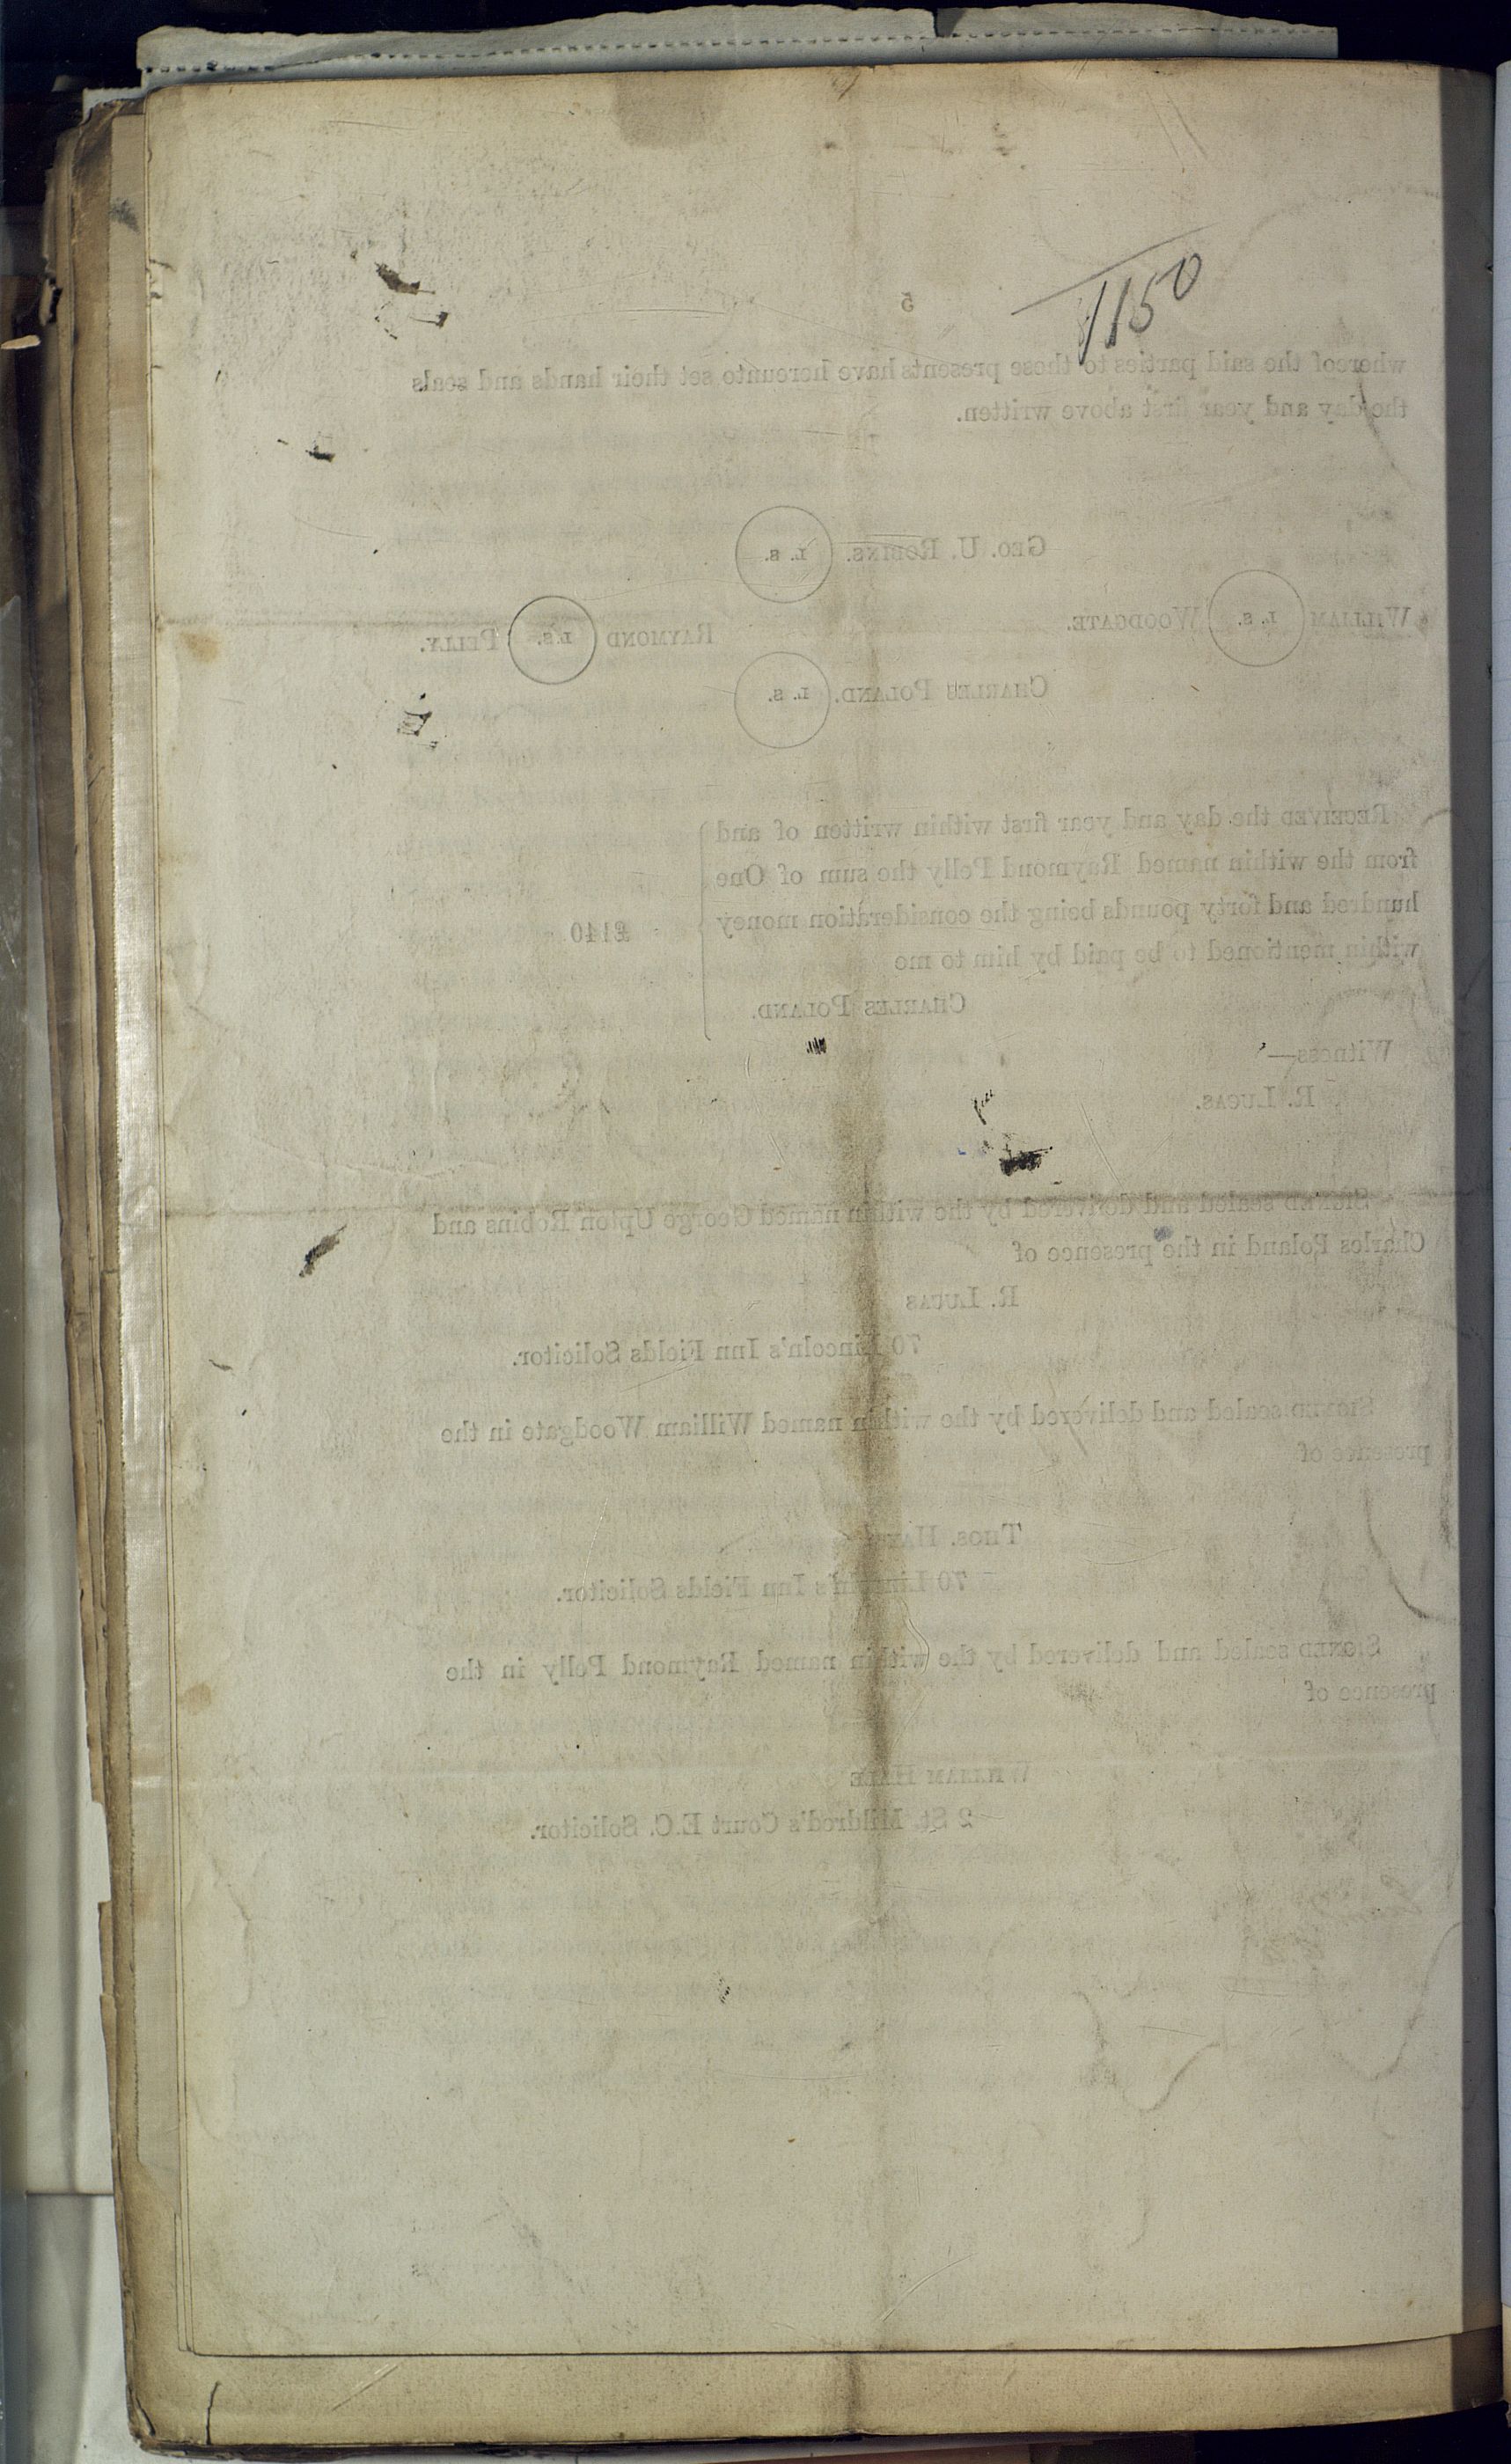 1150
5
whereof the said parties to these presents have hereunto set their hands and seals
the day and year first above written.
GEO. U. ROBINS. L. S.
WILLIAM L. S. WOODGATE. RAYMOND L. S. PELLY.
CHARLES POLAND. L. S.
RECEIVED the day and year first within written of and
from the within named Raymond Pelly the sum of One
hundred and forty pounds being the consideration money £140
within mentioned to be paid by him to me
CHARLES POLAND.
Witness—
R. LUCAS.
SIGNED sealed and delivered by the within named George Upton Robins and
Charles Poland in the presence of
R. LUCAS
70 Lincoln's Inn Fields Solicitor.
SIGNED sealed and delivered by the within named William Woodgate in the
presence of
THOS.
70 Lincoln's Inn Fields Solicitor.
SIGNED sealed and delivered by the within named Raymond Pelly in the
presence of
WILLIAM
2 St. Mildred's Court E.C. Solicitor.